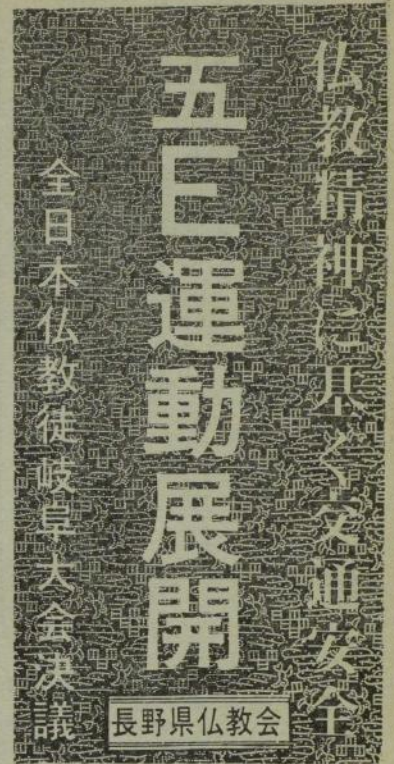 仏教精神に基く交通安全
五E運動展開
全日本仏教徒岐阜大会決議
長野県仏教会